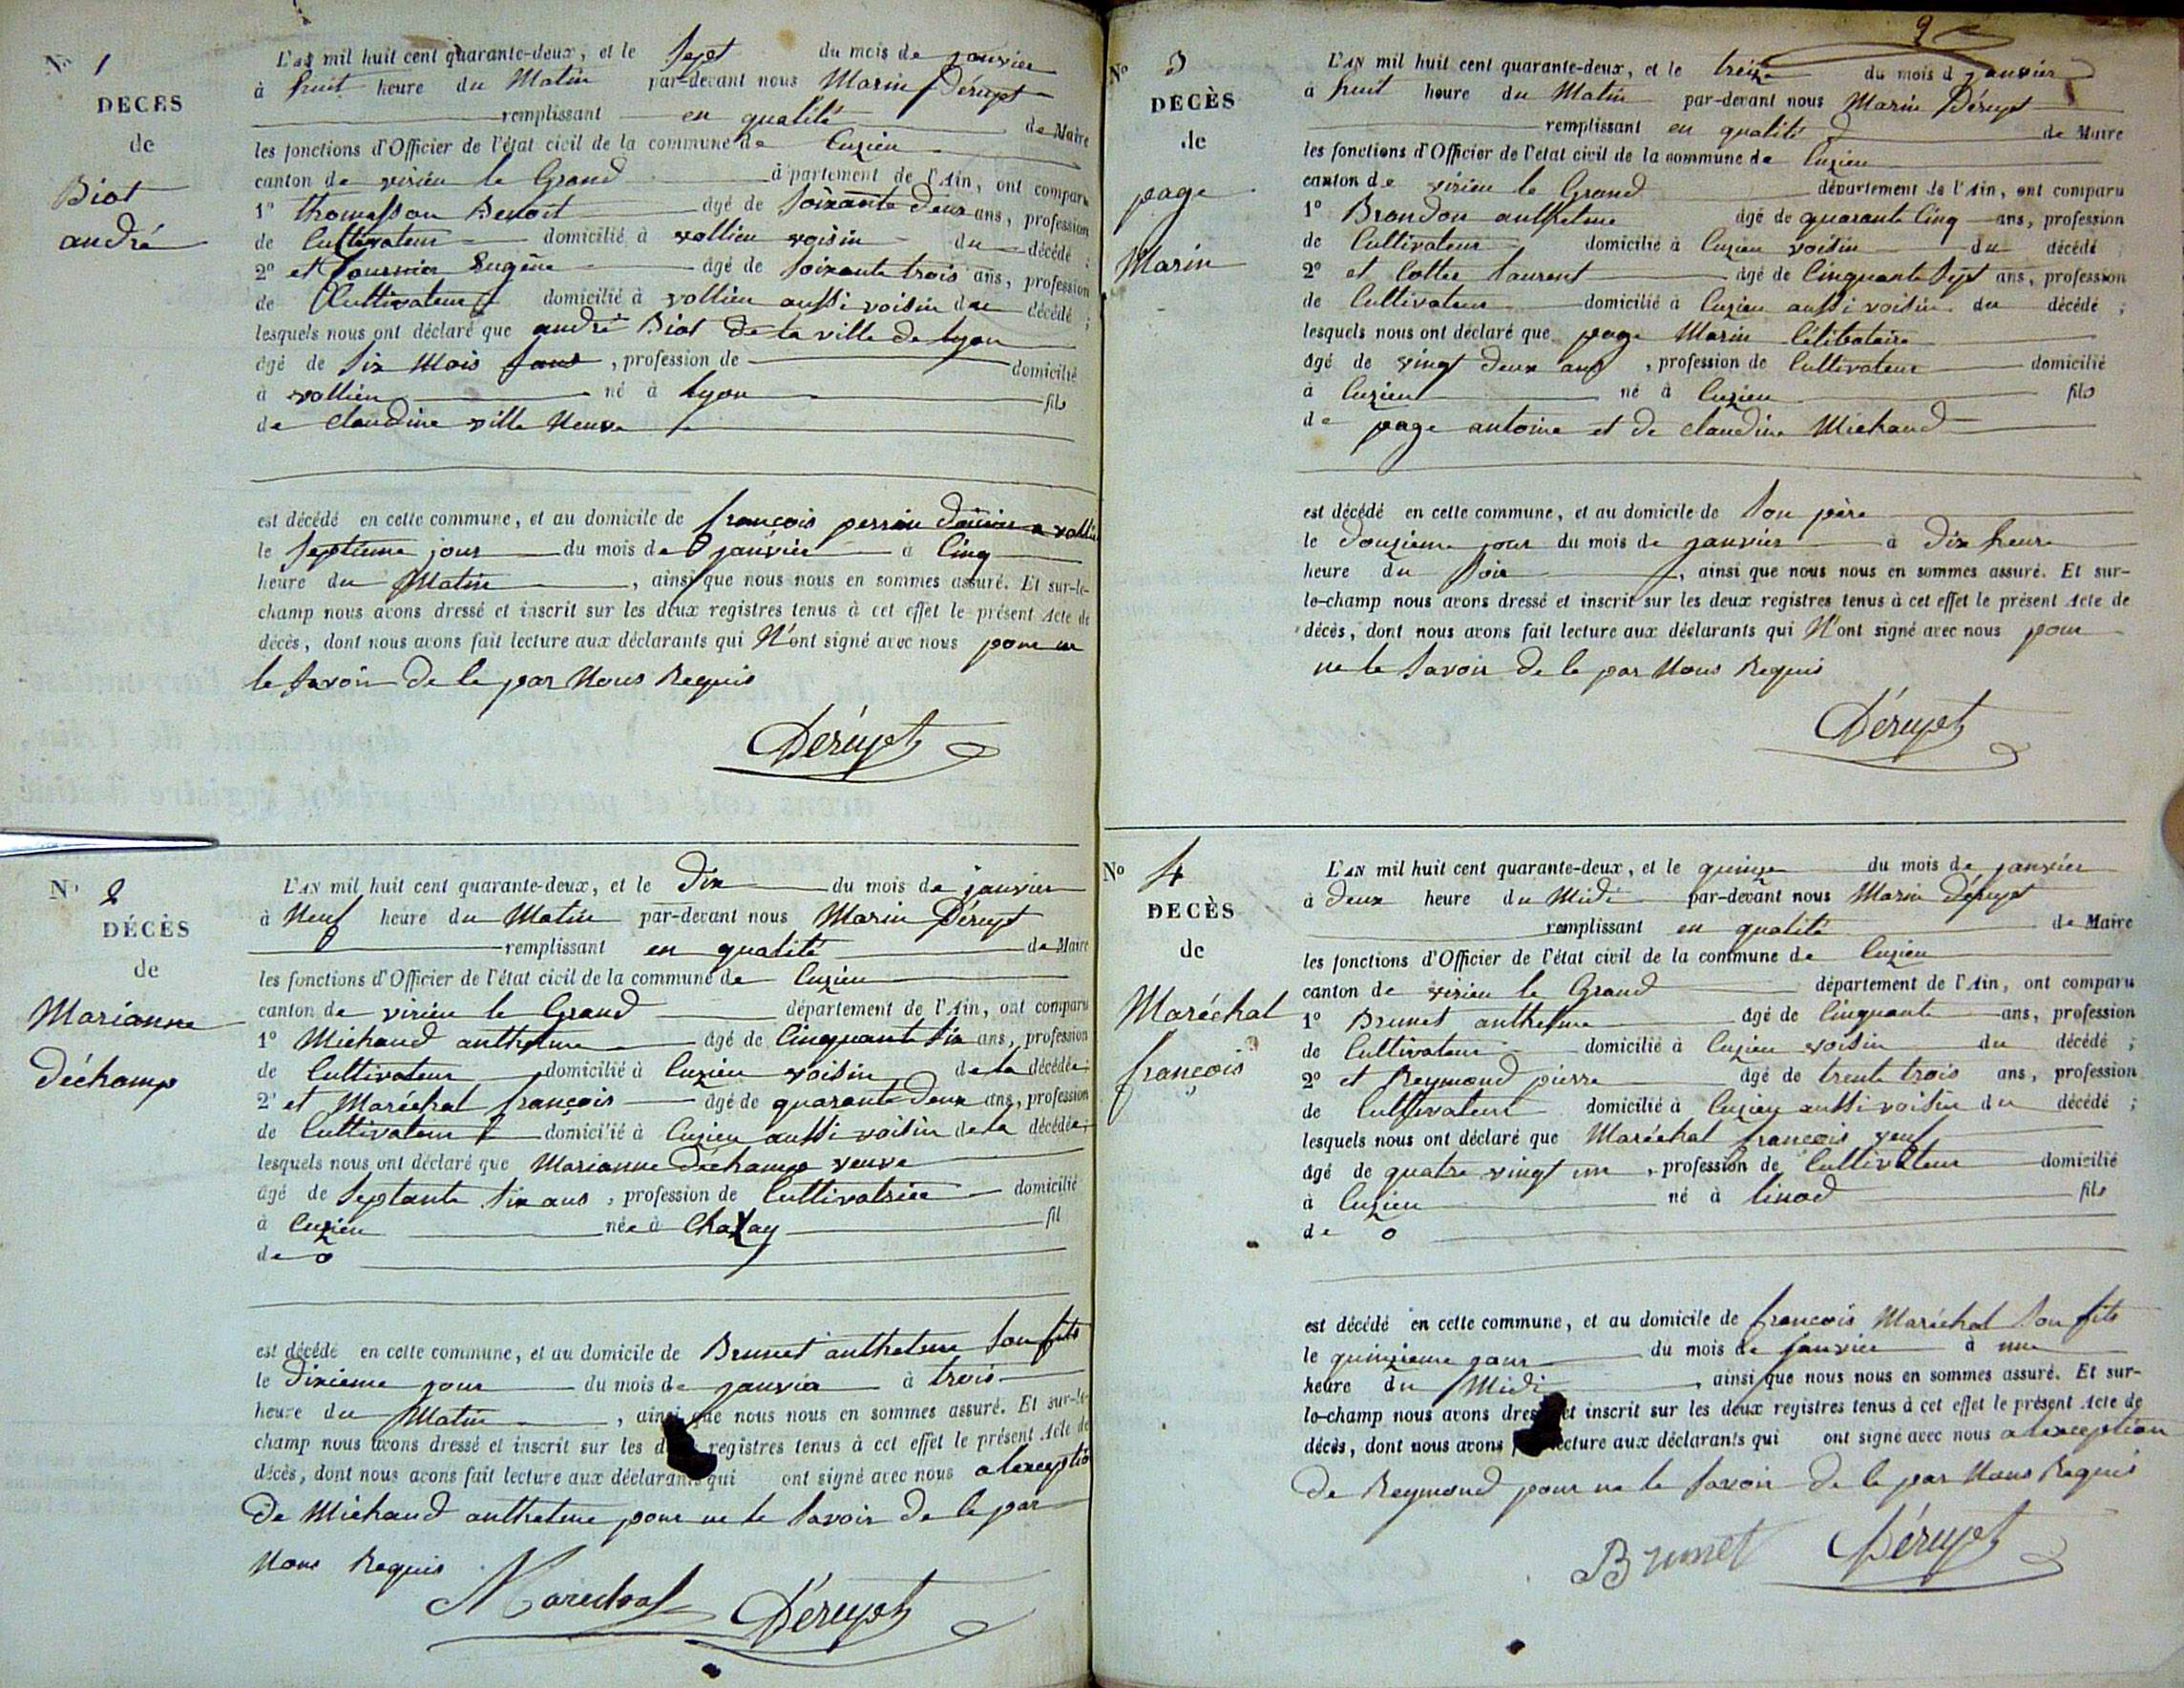 N° 1
DECES
de
Biot
andré
L'AN mil huit cent quarante-deux, et le sept du mois de janvier
à huit heure du Matin par-devant nous Marin Déruyet
remplissant en qualité de Maire
les fonctions d'Officier de l'état civil de la commune de Cuzieu
canton de virieu le Grand département de l'Ain, ont comparu
1° thomasson Benoit âgé de soixante deux ans, profession
de Cultivateur domicilié à vollien voisin du décédé ;
2° et fournier Eugène âgé de soixante trois ans, profession
de Cultivateur domicilié à vollien aussi voisin du décédé ;
lesquels nous ont déclaré que andré Biot de la ville de lyon
âgé de six Mois , profession de domicilié
à vollien né à lyon fils
de claudine ville Neuve
est décédé en cette commune, et au domicile de françois perrin
le septième jour du mois de janvier à cinq
heure du Matin , ainsi que nous nous en sommes assuré. Et sur-le-
champ nous avons dressé et inscrit sur les deux registres tenus à cet effet le présent Acte de
décès, dont nous avons fait lecture aux déclarants qui N'ont signé avec nous pour ne
le savoir de le par Nous Requis
Déruyet
N° 2
DÉCÈS
de
Marianne
déchamp
L'AN mil huit cent quarante-deux, et le dix du mois de janvier
à Neuf heure du Matin par-devant nous Marin Déruyet
remplissant en qualité de Maire
les fonctions d'Officier de l'état civil de la commune de Cuzieu
canton de virieu le Grand département de l'Ain, ont comparu
1° Michaud anthelme âgé de Cinquante six ans, profession
de Cultivateur domicilié à Cuzieu voisin de la décédée
2° et Maréchal françois âgé de quarante deux ans, profession
de Cultivateur domicilié à Cuzieu aussi voisin de la décédée ;
lesquels nous ont déclaré que Marianne déchamp veuve
âgé de septante six ans , profession de Cultivatrice domicilié
à Cuzieu née à Chazay fil
de o
est décédé en cette commune, et au domicile de Brunet anthelme son fils
le dixieme jour du mois de janvier à trois
heure du Matin , ainsi que nous nous en sommes assuré. Et sur-le-
champ nous avons dressé et inscrit sur les registres tenus à cet effet le présent Acte de
décès, dont nous avons fait lecture aux déclarants qui ont signé avec nous a lexeption
de Michaud anthelme pour ne le savoir de le par
Nous Requis
Marechal Déruyet
2
N° 3
DECÈS
de
page
Marin
L'AN mil huit cent quarante-deux, et le treize du mois d janvier
à huit heure du Matin par-devant nous Marin Déruyet
remplissant en qualité de Maire
les fonctions d'Officier de l'état civil de la commune de Cuzieu
canton de virieu le Grand département de l'Ain, ont comparu
1° Brondon anthelme âgé de quarante Cinq ans, profession
de Cultivateur domicilié à Cuzieu voisin du décédé
2° et Cottes laurent âgé de Cinquante sept ans, profession
de Cultivateur domicilié à Cuzieu aussi voisin du décédé ;
lesquels nous ont déclaré que page Marin Célibataire
âgé de vingt deux ans , profession de Cultivateur domicilié
à Cuzieu né à Cuzieu fils
de page antoine et de claudine Michaud
est décédé en cette commune, et au domicile de son père
le douzieme jour du mois de janvier à dix heure
heure du soir , ainsi que nous nous en sommes assuré. Et sur-
le-champ nous avons dressé et inscrit sur les deux registres tenus à cet effet le présent Acte de
décès, dont nous avons fait lecture aux déclarants qui N'ont signé avec nous pour
ne le savoir de le par Nous Requis
Déruyet
N° 4
DECÈS
de
Maréchal
françois
L'AN mil huit cent quarante-deux, et le quinze du mois de janvier
à deux heure du Midi par-devant nous Marin Déruyet
remplissant en qualité de Maire
les fonctions d'Officier de l'état civil de la commune de Cuzieu
canton de virieu le Grand département de l'Ain, ont comparu
1° Brunet anthelme âgé de Cinquante ans, profession
de Cultivateur domicilié à Cuzieu voisin du décédé ;
2° et Reymond pierre âgé de trente trois ans, profession
de Cultivateur domicilié à Cuzieu aussi voisin du décédé ;
lesquels nous ont déclaré que Maréchal françois veuf
âgé de quatre vingt un , profession de Cultivateur domicilié
à Cuzieu né à linod fils
de o
est décédé en cette commune, et au domicile de françois Maréchal son fils
le quinzieme jour du mois de janvier à une
heure du Midi , ainsi que nous nous en sommes assuré. Et sur-
le-champ nous avons dressé et inscrit sur les deux registres tenus à cet effet le présent Acte de
décès, dont nous avons lecture aux déclarants qui ont signé avec nous a lexception
de Reymond pour ne le savoir de le par Nous Requis
Brunet Déruyet